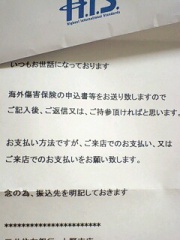 H.I.S.
Highest International Standards
いつもお世話になっております
海外傷害保険の申込書等をお送り致しますので
ご記入後、ご返信又は、ご持参頂ければと思います。
お支払い方法ですが、ご来店でのお支払い、又は
ご来店でのお支払いをお願い致します。
念の為、振込先を明記しておきます
**********************